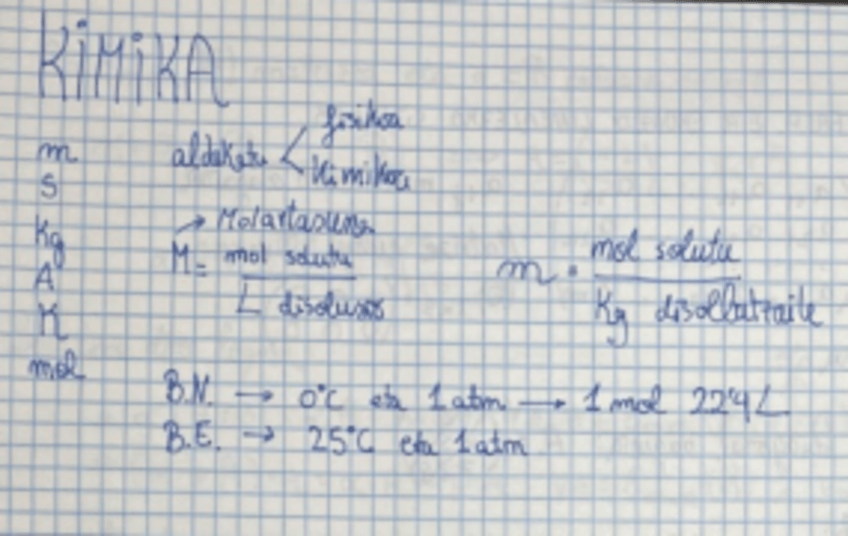 KiMiKA
m
s
Kg
A
K
mol
aldaketa < fisikoa
kimikoa
→ Molartasuna
M = mol solutu
L disoluzio
m = mol solutu
Kg disolbatzaile
B.N. → 0°C eta 1 atm → 1 mol 22'4 L
B.E. → 25°C eta 1 atm